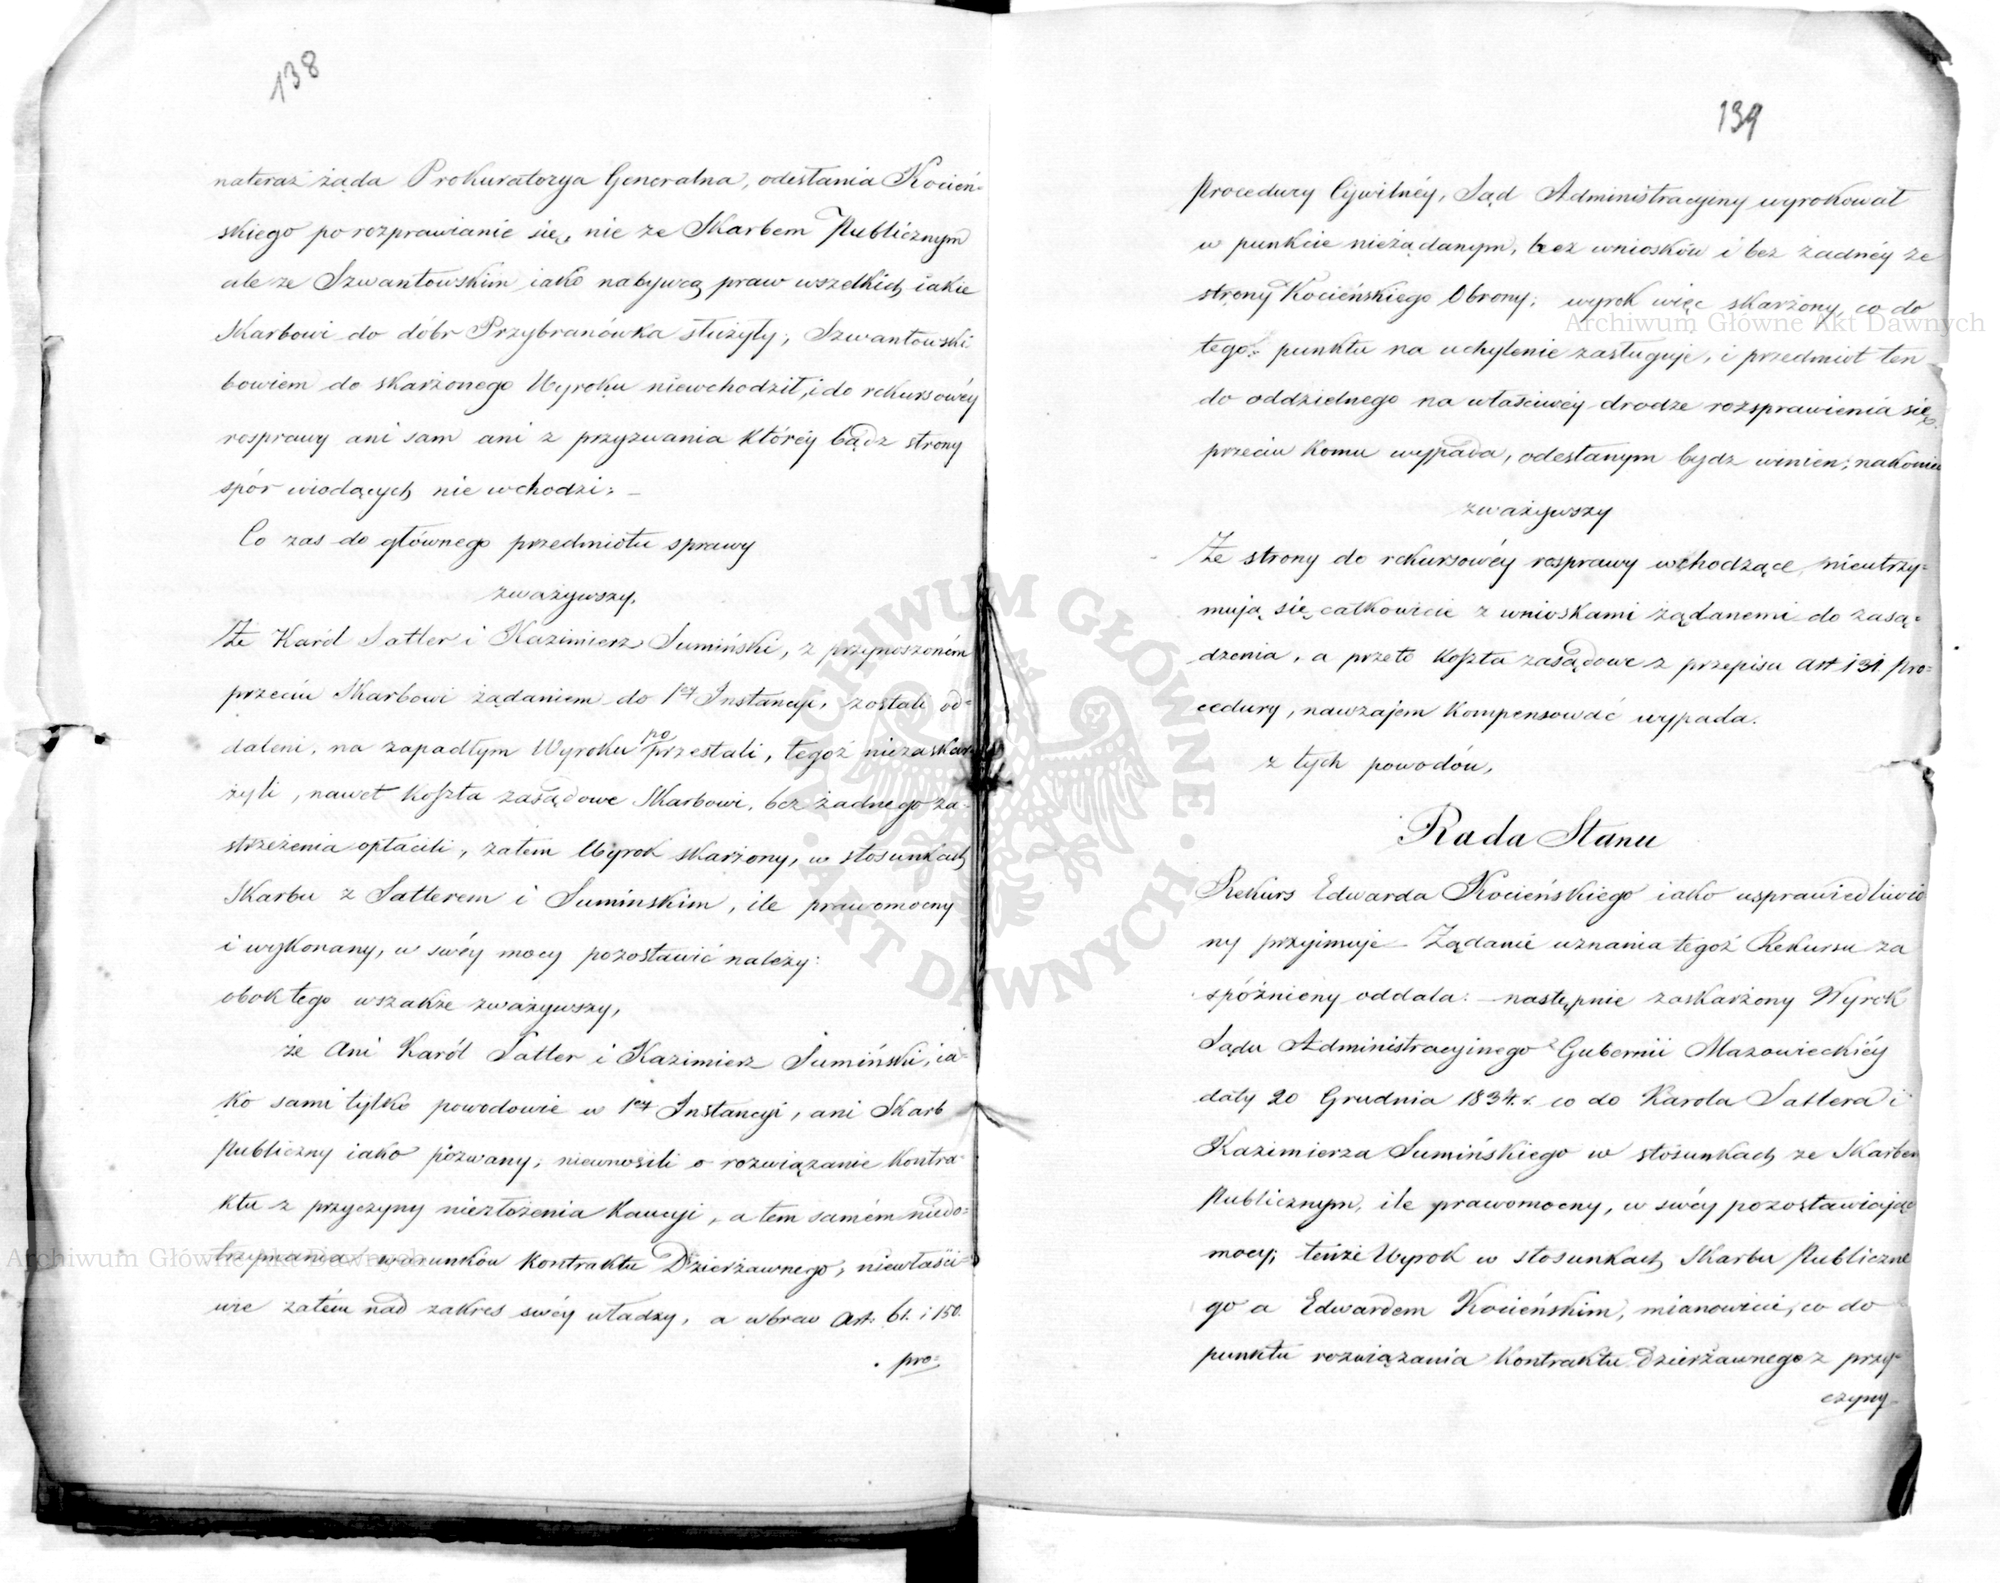 138
nateraz żąda Prokuratorya Generalna, odesłania Kocień-
skiego po rozprawianie się, nie ze Skarbem Publicznym
ale ze Szwantowskim iako nabywcą praw wszelkich iakie
Skarbowi do dóbr Przybranówka służyły; Szwantowski
bowiem do skarżonego Wyroku niewchodził, i do rekursowéy
rosprawy ani sam ani z przyzwania któréy bądz strony
spór wiodących nie wchodzi: –
Co zas do głównego przedmiotu sprawy
zważywszy,
Że Karól Satler i Kazimierz Sumiński, z przynoszoném
przeciw Skarbowi żądaniem do 1éy Instancyi, zostali od-
daleni, na zapadłym Wyroku poprzestali, tegoż niezaskar
żyli, nawet koszta zasądowe Skarbowi, bez żadnego za-
strzeżenia opłacili, zatem Wyrok skarżony, w stosunkach
Skarbu z Satlerem i Suminskim, ile prawomocny
i wykonany, w swéy mocy pozostawić należy:
obok tego wszakże zważywszy,
że Ani Karól Satler i Kazimierz Sumiński, ia-
ko sami tylko powodowie w 1éy Instancyi, ani Skarb
Publiczny iako pózwany, niewnosili o rozwiązanie Kontra-
ktu z przyczyny niezłożenia Kaucyi, a tem samém niedo-
trzymania warunków Kontraktu Dzierżawnego, niewłaści-
wie zatém nad zakres swéy władzy, a wbrew Art. 61. i 150.
pro-
139
Procedury Cywilnéy, Sąd Administracyiny wyrokował
w punkcie nieżądanym, bez wniosków i bez żadnéy ze
strony Kocieńskiego Obrony; wyrok więc skarżony, co do
tego punktu na uchylenie zasługuje, i przedmiot ten
do oddzielnego na właściwéy drodze rozsprawienia się
przeciw komu wypada, odesłanym bydz winien; nakoniec
zważywszy
Że strony do rekursowéy rosprawy wchodzące, nieutrzy-
mują się całkowicie z wnioskami żądanemi do zasą-
dzenia, a przeto koszta zasądowe z przepisu art 131. Pro-
cedury, nawzajem kompensować wypada.
z tych powodów,
Rada Stanu
Rekurs Edwarda Kocieńskiego iako usprawiedliwio
ny przyimuje – Żądanie uznania tegoż Rekursu za
spóźniony oddala: – następnie zaskarżony Wyrok
Sądu Administracyinego Gubernii Mazowieckiéy
daty 20 Grudnia 1834. r. co do Karola Satlera i
Kazimierza Sumińskiego w stosunkach ze Skarbem
Publicznym, ile prawomocny, w swéy pozostawiając
mocy; tenże Wyrok w stosunkach Skarbu Publiczne
go a Edwardem Kocieńskim, mianowicie, co do
punktu rozwiązania Kontraktu Dzierżawnego z przy-
czyny
Archiwum Główne Akt Dawnych
Archiwum Główne Akt Dawnych
ARCHIWUM GŁÓWNE · AKT DAWNYCH ·